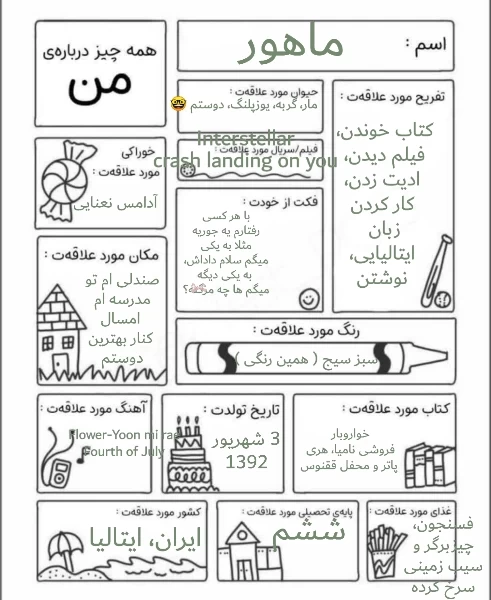 همه چیز درباره‌ی
من
اسم :
ماهور
حیوان مورد علاقه‌ت :
مار، گربه، یوزپلنگ، دوستم 🤓
تفریح مورد علاقه‌ت :
کتاب خوندن،
فیلم دیدن،
ادیت زدن،
کار کردن
زبان
ایتالیایی،
نوشتن
خوراکی
مورد علاقه‌ت :
آدامس نعنایی
فیلم/سریال مورد علاقه‌ت :
Interstellar
crash landing on you
فکت از خودت :
با هر کسی
رفتارم یه جوریه
مثلا به یکی
میگم سلام داداش،
به یکی دیگه
میگم ها چه مرگته؟
مکان مورد علاقه‌ت :
صندلی ام تو
مدرسه ام
امسال
کنار بهترین
دوستم
رنگ مورد علاقه‌ت :
سبز سیج ( همین رنگی )
آهنگ مورد علاقه‌ت :
Flower-Yoon mi rae
Fourth of July
تاریخ تولدت :
3 شهریور
1392
کتاب مورد علاقه‌ت :
خواروبار
فروشی نامیا، هری
پاتر و محفل ققنوس
کشور مورد علاقه‌ت :
ایران، ایتالیا
پایه‌ی تحصیلی مورد علاقه‌ت :
ششم
غذای مورد علاقه‌ت :
فسنجون،
چیزبرگر و
سیب زمینی
سرخ کرده